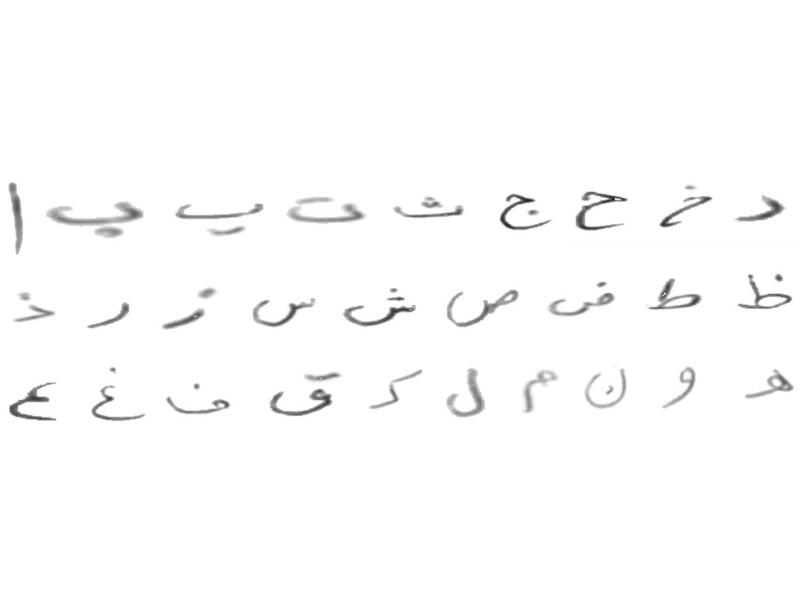 ا ب پ ت ث ج ح خ د
ذ ر ز س ش ص ض ط ظ
ع غ ف ق ک ل م ن و ه